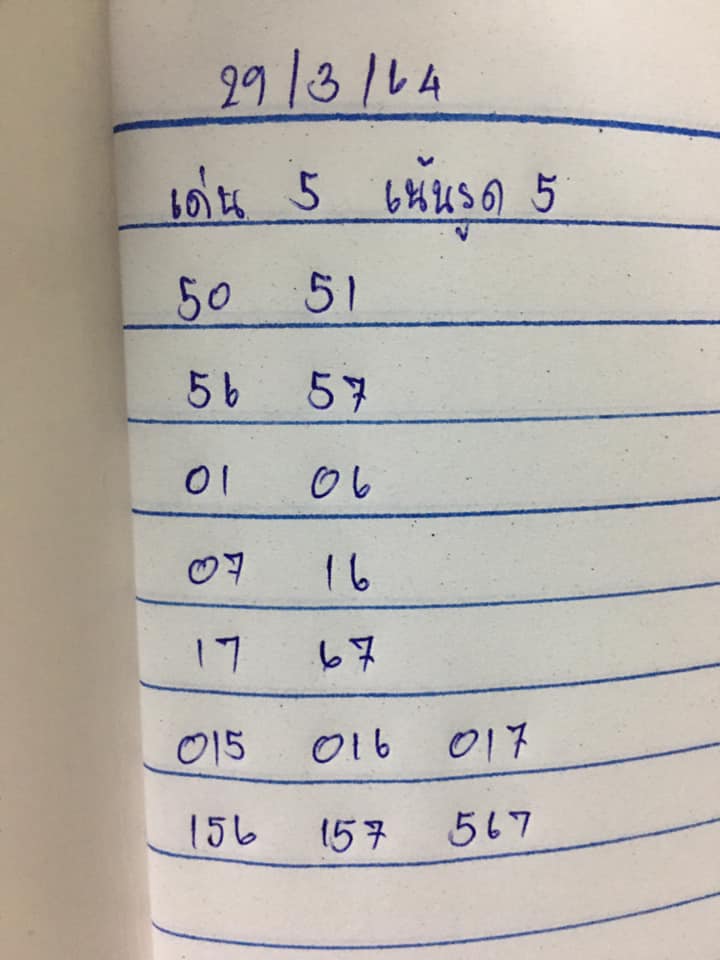 29/3/64
เด่น 5 เน้นรูด 5
50 51
56 57
01 06
07 16
17 67
015 016 017
156 157 567